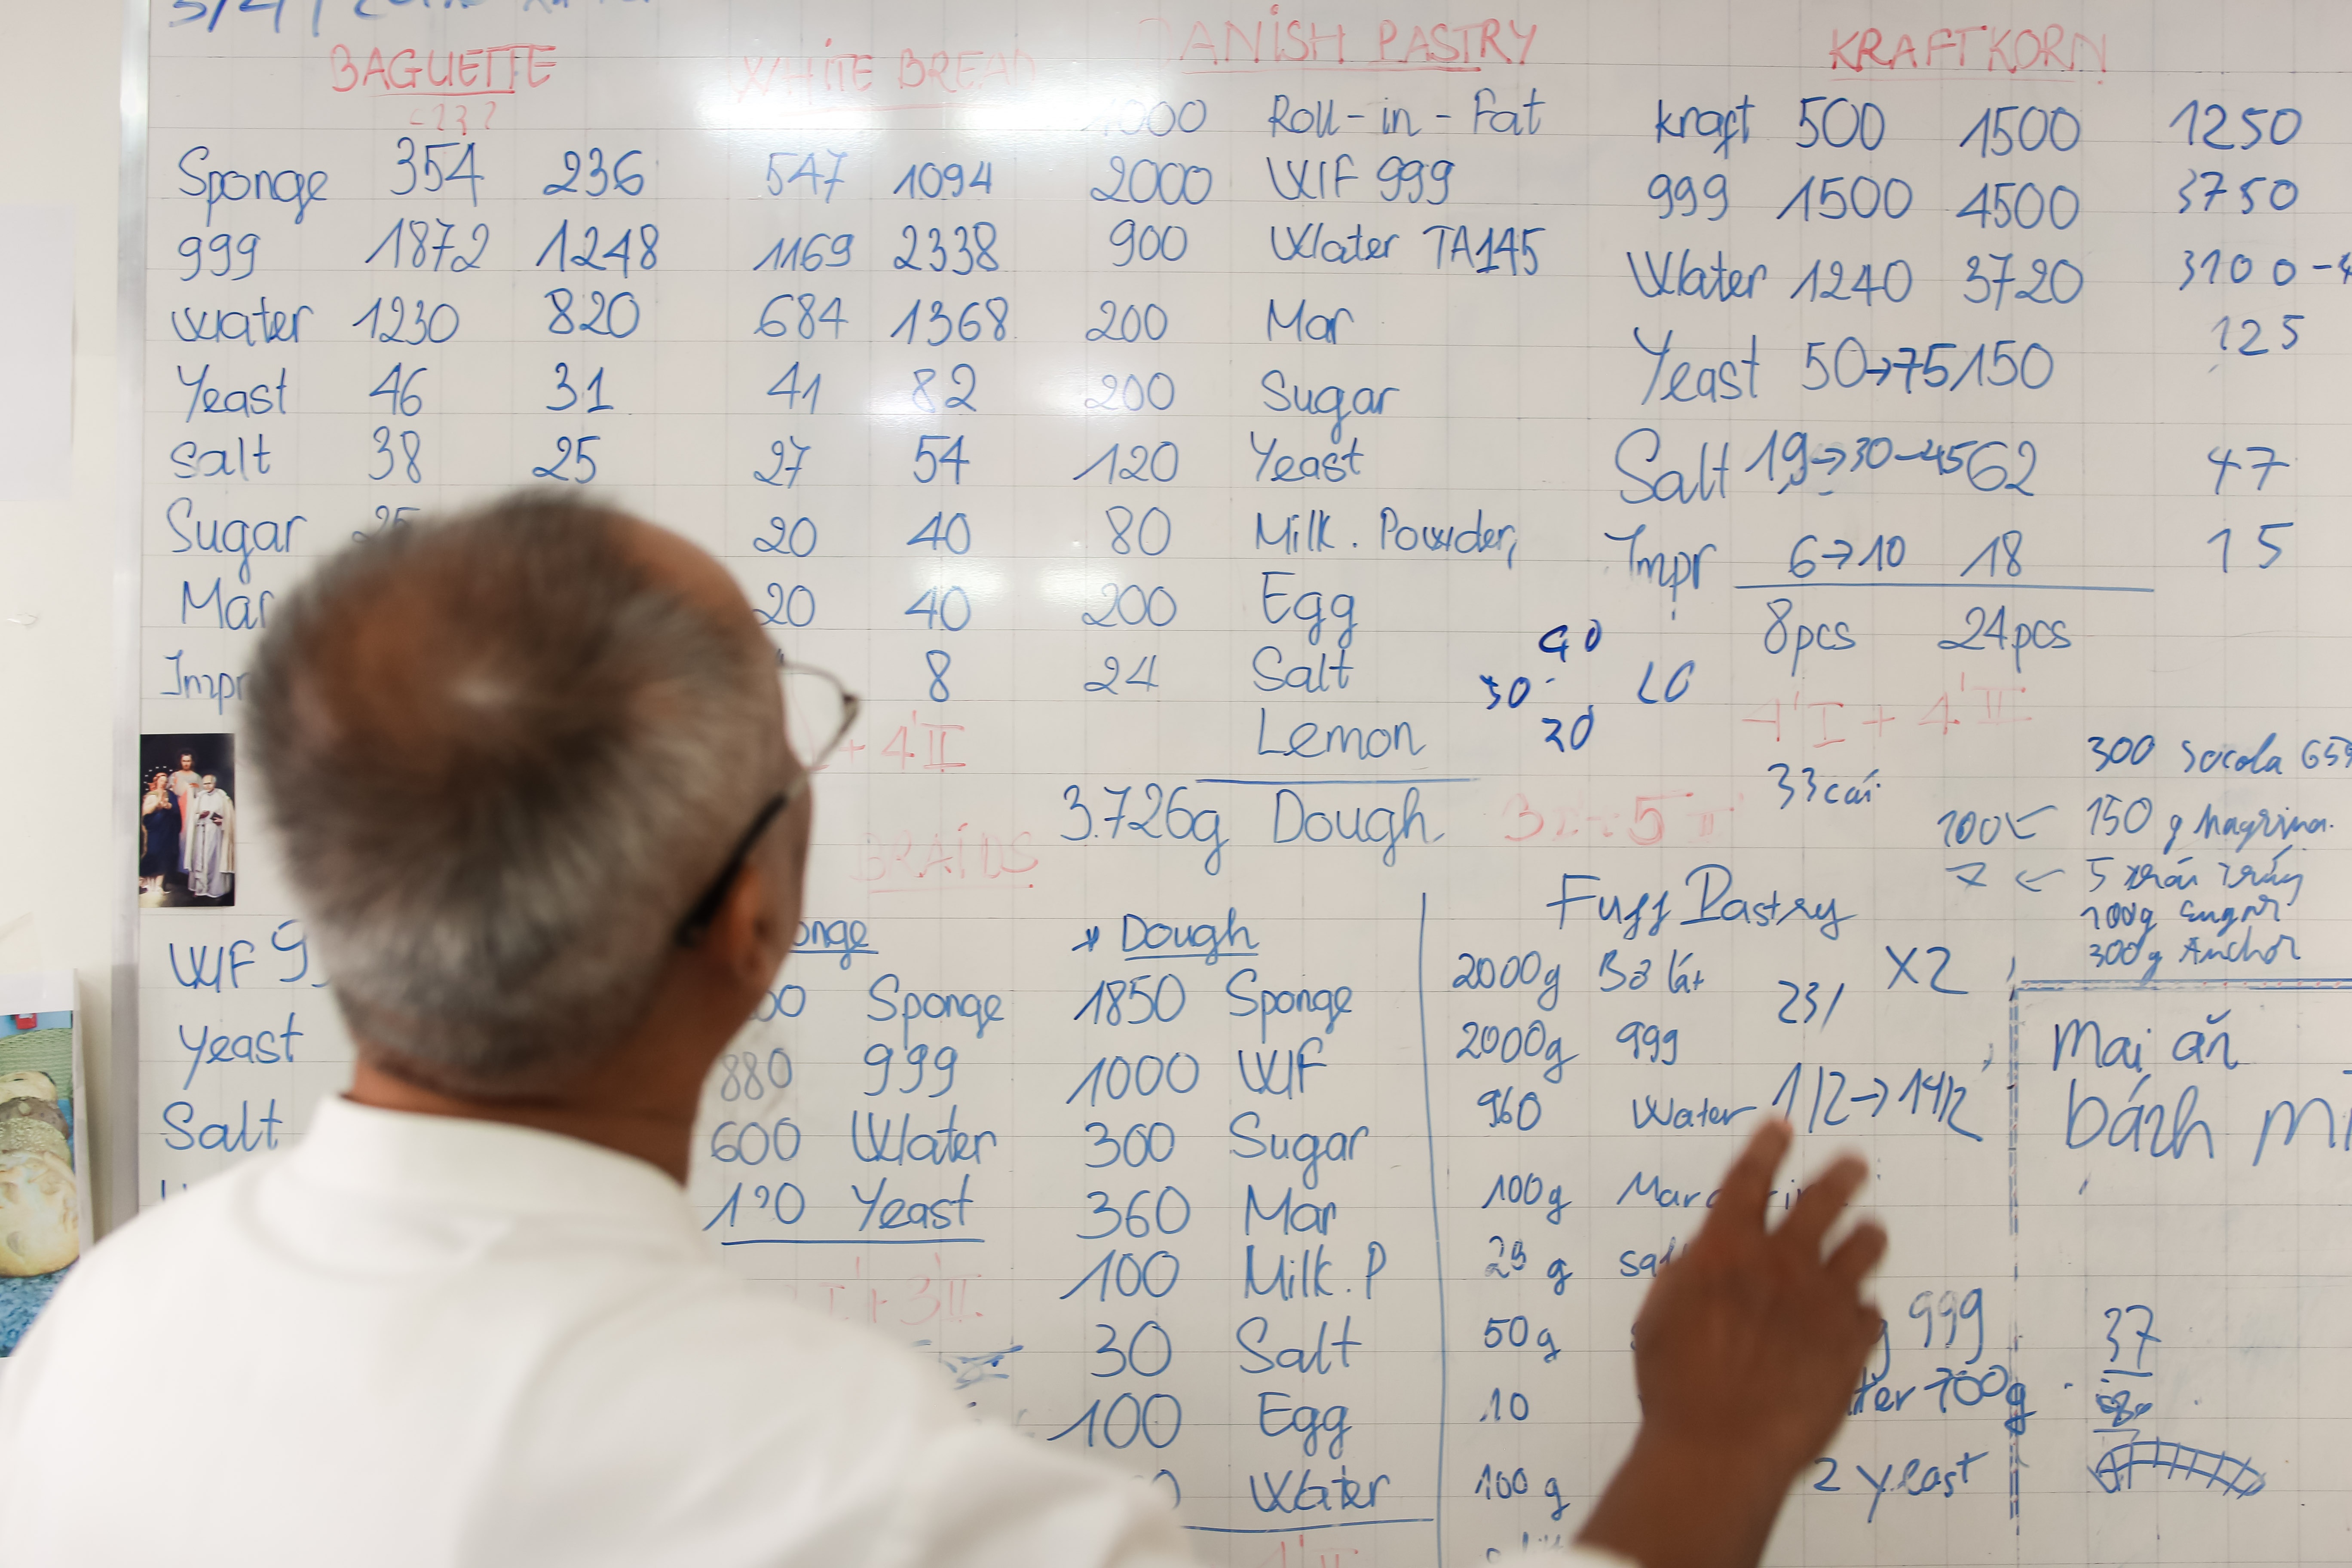 BAGUETTE
Sponge 354 236
999 1872 1248
Water 1230 820
Yeast 46 31
Salt 38 25
Sugar 25
Mar
Impr
WHITE BREAD
547 1094
1169 2338
684 1368
41 82
27 54
20 40
20 40
8
+ 4'II
DANISH PASTRY
1000 Roll-in-Fat
2000 WF 999
900 Water TA145
200 Mar
200 Sugar
120 Yeast
80 Milk. Powder,
200 Egg
24 Salt
Lemon
3.726g Dough
KRAFTKORN
kraft 500 1500 1250
999 1500 4500 3750
Water 1240 3720 3100-4
Yeast 50→75 150 125
Salt 19→30-45 62 47
Impr 6→10 18 15
8pcs 24pcs
4'I + 4'II
33 cái
30
20
300 Socola
100← 150 g
7 ← 5 trái trứng
100g sugar
300g Anchor
BRAIDS
WF 9
Yeast
Salt
onge
Sponge
880 999
600 Water
Yeast
I + 3'II
* Dough
1850 Sponge
1000 WF
300 Sugar
360 Mar
100 Milk.P
30 Salt
100 Egg
Water
Fuff Pastry
2000g Bơ lát
2000g 999
960 Water 1/2→1 1/2
X2
231
100g Mar
g sal
50g
10
100g
999
ter 700g
2 yeast
Mai ăn
bánh mì
37